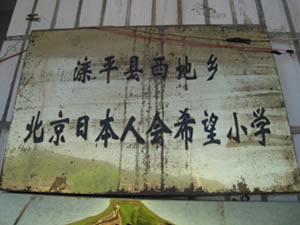 滦平县西地乡
北京日本人会希望小学